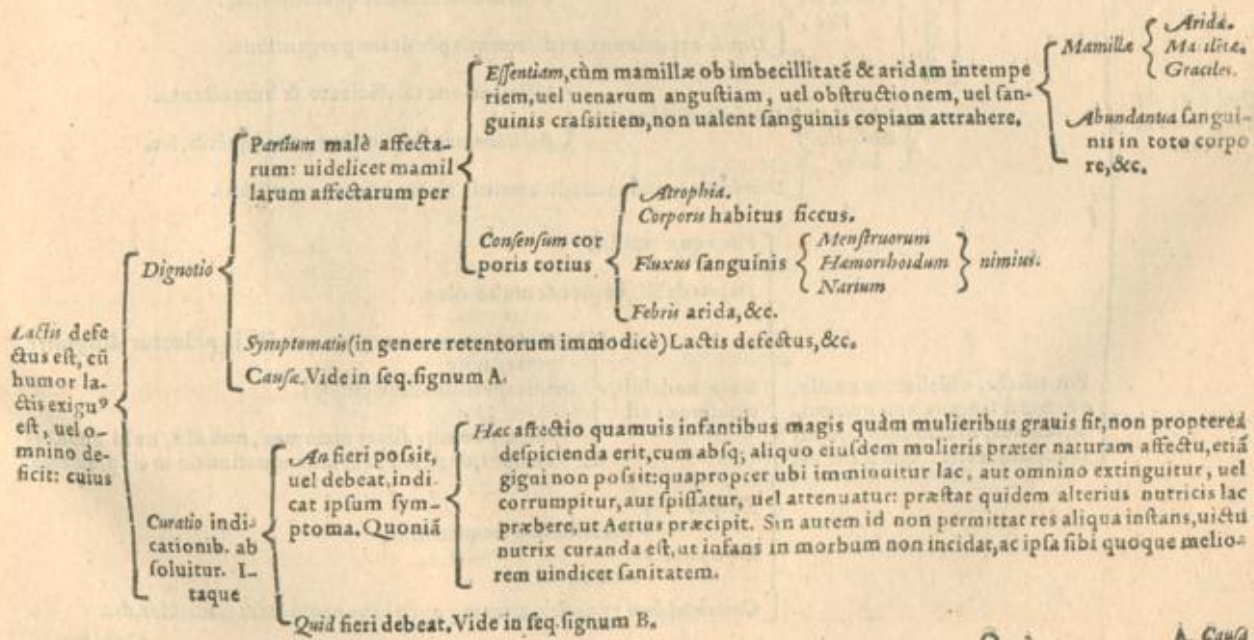 Lactis defe
ctus est, cū
humor la-
ctis exiguꝰ
est, uel o-
mnino de-
ficit: cuius
Dignotio
Partium malè affecta-
rum: uidelicet mamil
larum affectarum per
Essentiam, cùm mamillæ ob imbecillitatē & aridam intempe
riem, uel uenarum angustiam, uel obstructionem, uel san-
guinis crassitiem, non ualent sanguinis copiam attrahere.
Mamillæ
Aridæ.
Macilētæ.
Graciles.
Abundantia sangui-
nis in toto corpo
re, &c.
Consensum cor
poris totius
Atrophia.
Corporis habitus siccus.
Fluxus sanguinis
Menstruorum
Hæmorrhoidum
Narium
nimius.
Febris arida, &c.
Symptomatis (in genere retentorum immodicè) Lactis defectus, &c.
Causæ. Vide in seq. signum A.
Curatio indi-
cationib. ab
soluitur. I-
taque
An fieri possit,
uel debeat, indi
cat ipsum sym-
ptoma. Quoniā
Hæc affectio quamuis infantibus magis quàm mulieribus grauis sit, non proptereà
despicienda erit, cum absq; aliquo eiusdem mulieris præter naturam affectu, etiā
gigni non possit: quapropter ubi imminuitur lac, aut omnino extinguitur, uel
corrumpitur, aut spissatur, uel attenuatur: præstat quidem alterius nutricis lac
præbere, ut Aetius præcipit. Sin autem id non permittat res aliqua instans, uictu
nutrix curanda est, ut infans in morbum non incidat, ac ipsa sibi quoque melio-
rem uindicet sanitatem.
Quid fieri debeat. Vide in seq. signum B.
A. Causæ